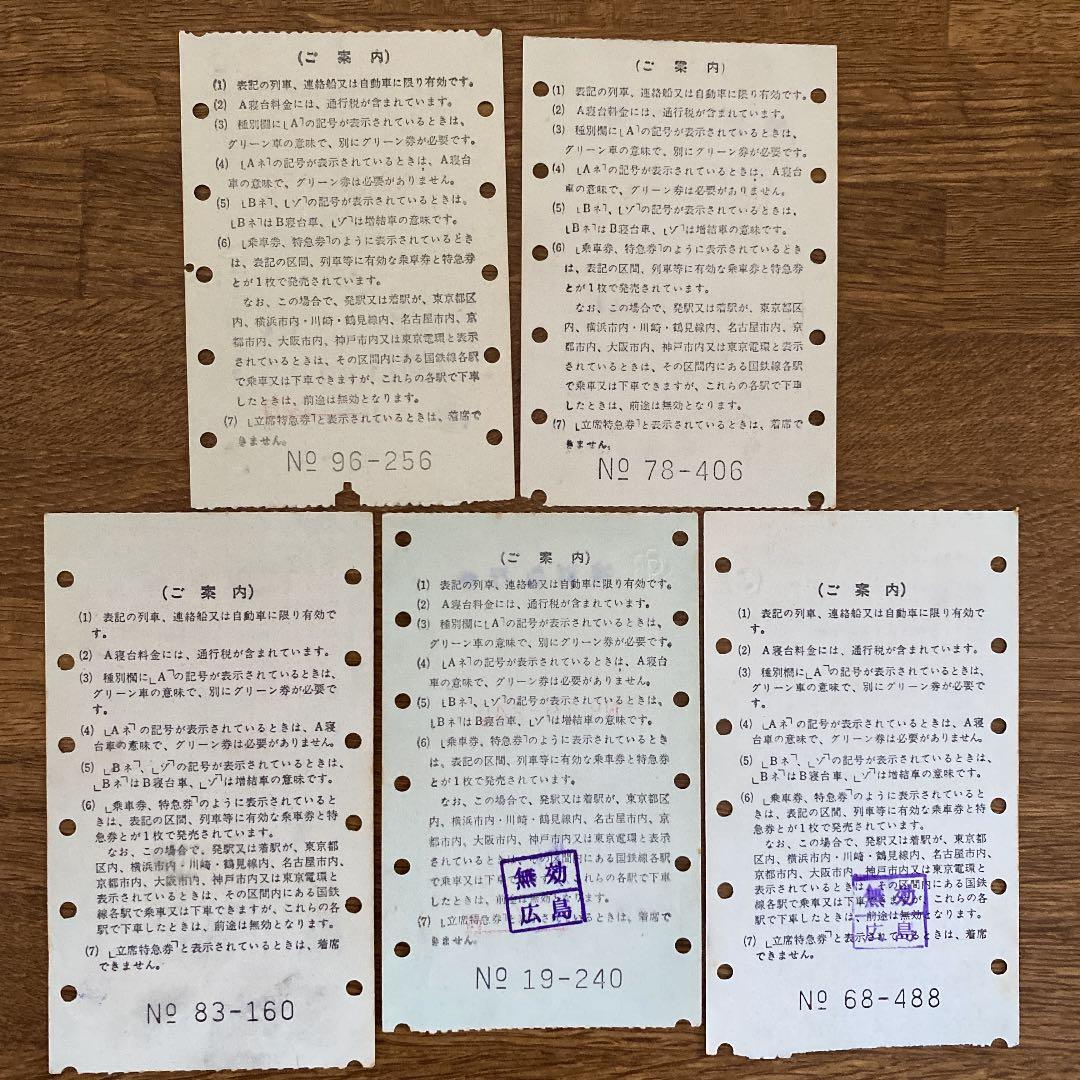 (ご 案 内)
(1) 表記の列車、連絡船又は自動車に限り有効です。
(2) A寝台料金には、通行税が含まれています。
(3) 種別欄に﹂A﹁の記号が表示されているときは、
グリーン車の意味で、別にグリーン券が必要です。
(4) ﹂Aネ﹁の記号が表示されているときは、A寝台
車の意味で、グリーン券は必要がありません。
(5) ﹂Bネ﹁、﹂ゾ﹁の記号が表示されているときは、
﹂Bネ﹁はB寝台車、﹂ゾ﹁は増結車の意味です。
(6) ﹂乗車券、特急券﹁のように表示されているとき
は、表記の区間、列車等に有効な乗車券と特急券
とが1枚で発売されています。
なお、この場合で、発駅又は着駅が、東京都区
内、横浜市内・川崎・鶴見線内、名古屋市内、京
都市内、大阪市内、神戸市内又は東京電環と表示
されているときは、その区間内にある国鉄線各駅
で乗車又は下車できますが、これらの各駅で下車
したときは、前途は無効となります。
(7) ﹂立席特急券﹁と表示されているときは、着席で
きません。
№ 96-256
(ご 案 内)
(1) 表記の列車、連絡船又は自動車に限り有効です。
(2) A寝台料金には、通行税が含まれています。
(3) 種別欄に﹂A﹁の記号が表示されているときは、
グリーン車の意味で、別にグリーン券が必要です。
(4) ﹂Aネ﹁の記号が表示されているときは、A寝台
車の意味で、グリーン券は必要がありません。
(5) ﹂Bネ﹁、﹂ゾ﹁の記号が表示されているときは、
﹂Bネ﹁はB寝台車、﹂ゾ﹁は増結車の意味です。
(6) ﹂乗車券、特急券﹁のように表示されているとき
は、表記の区間、列車等に有効な乗車券と特急券
とが1枚で発売されています。
なお、この場合で、発駅又は着駅が、東京都区
内、横浜市内・川崎・鶴見線内、名古屋市内、京
都市内、大阪市内、神戸市内又は東京電環と表示
されているときは、その区間内にある国鉄線各駅
で乗車又は下車できますが、これらの各駅で下車
したときは、前途は無効となります。
(7) ﹂立席特急券﹁と表示されているときは、着席で
きません。
№ 78-406
(ご 案 内)
(1) 表記の列車、連絡船又は自動車に限り有効で
す。
(2) A寝台料金には、通行税が含まれています。
(3) 種別欄に﹂A﹁の記号が表示されているときは、
グリーン車の意味で、別にグリーン券が必要で
す。
(4) ﹂Aネ﹁の記号が表示されているときは、A寝
台車の意味で、グリーン券は必要がありません。
(5) ﹂Bネ﹁、﹂ゾ﹁の記号が表示されているときは、
﹂Bネ﹁はB寝台車、﹂ゾ﹁は増結車の意味です。
(6) ﹂乗車券、特急券﹁のように表示されていると
きは、表記の区間、列車等に有効な乗車券と特
急券とが1枚で発売されています。
なお、この場合で、発駅又は着駅が、東京都
区内、横浜市内・川崎・鶴見線内、名古屋市内、
京都市内、大阪市内、神戸市内又は東京電環と
表示されているときは、その区間内にある国鉄
線各駅で乗車又は下車できますが、これらの各
駅で下車したときは、前途は無効となります。
(7) ﹂立席特急券﹁と表示されているときは、着席
できません。
№ 83-160
(ご 案 内)
(1) 表記の列車、連絡船又は自動車に限り有効です。
(2) A寝台料金には、通行税が含まれています。
(3) 種別欄に﹂A﹁の記号が表示されているときは、
グリーン車の意味で、別にグリーン券が必要です。
(4) ﹂Aネ﹁の記号が表示されているときは、A寝台
車の意味で、グリーン券は必要がありません。
(5) ﹂Bネ﹁、﹂ゾ﹁の記号が表示されているときは、
﹂Bネ﹁はB寝台車、﹂ゾ﹁は増結車の意味です。
(6) ﹂乗車券、特急券﹁のように表示されているとき
は、表記の区間、列車等に有効な乗車券と特急券
とが1枚で発売されています。
なお、この場合で、発駅又は着駅が、東京都区
内、横浜市内・川崎・鶴見線内、名古屋市内、京
都市内、大阪市内、神戸市内又は東京電環と表示
されているときは、その区間内にある国鉄線各駅
で乗車又は下車できますが、これらの各駅で下車
したときは、前途は無効となります。
(7) ﹂立席特急券﹁と表示されているときは、着席で
きません。
無効
広島
№ 19-240
(ご 案 内)
(1) 表記の列車、連絡船又は自動車に限り有効で
す。
(2) A寝台料金には、通行税が含まれています。
(3) 種別欄に﹂A﹁の記号が表示されているときは、
グリーン車の意味で、別にグリーン券が必要で
す。
(4) ﹂Aネ﹁の記号が表示されているときは、A寝
台車の意味で、グリーン券は必要がありません。
(5) ﹂Bネ﹁、﹂ゾ﹁の記号が表示されているときは、
﹂Bネ﹁はB寝台車、﹂ゾ﹁は増結車の意味です。
(6) ﹂乗車券、特急券﹁のように表示されていると
きは、表記の区間、列車等に有効な乗車券と特
急券とが1枚で発売されています。
なお、この場合で、発駅又は着駅が、東京都
区内、横浜市内・川崎・鶴見線内、名古屋市内、
京都市内、大阪市内、神戸市内又は東京電環と
表示されているときは、その区間内にある国鉄
線各駅で乗車又は下車できますが、これらの各
駅で下車したときは、前途は無効となります。
(7) ﹂立席特急券﹁と表示されているときは、着席
できません。
無効
広島
№ 68-488